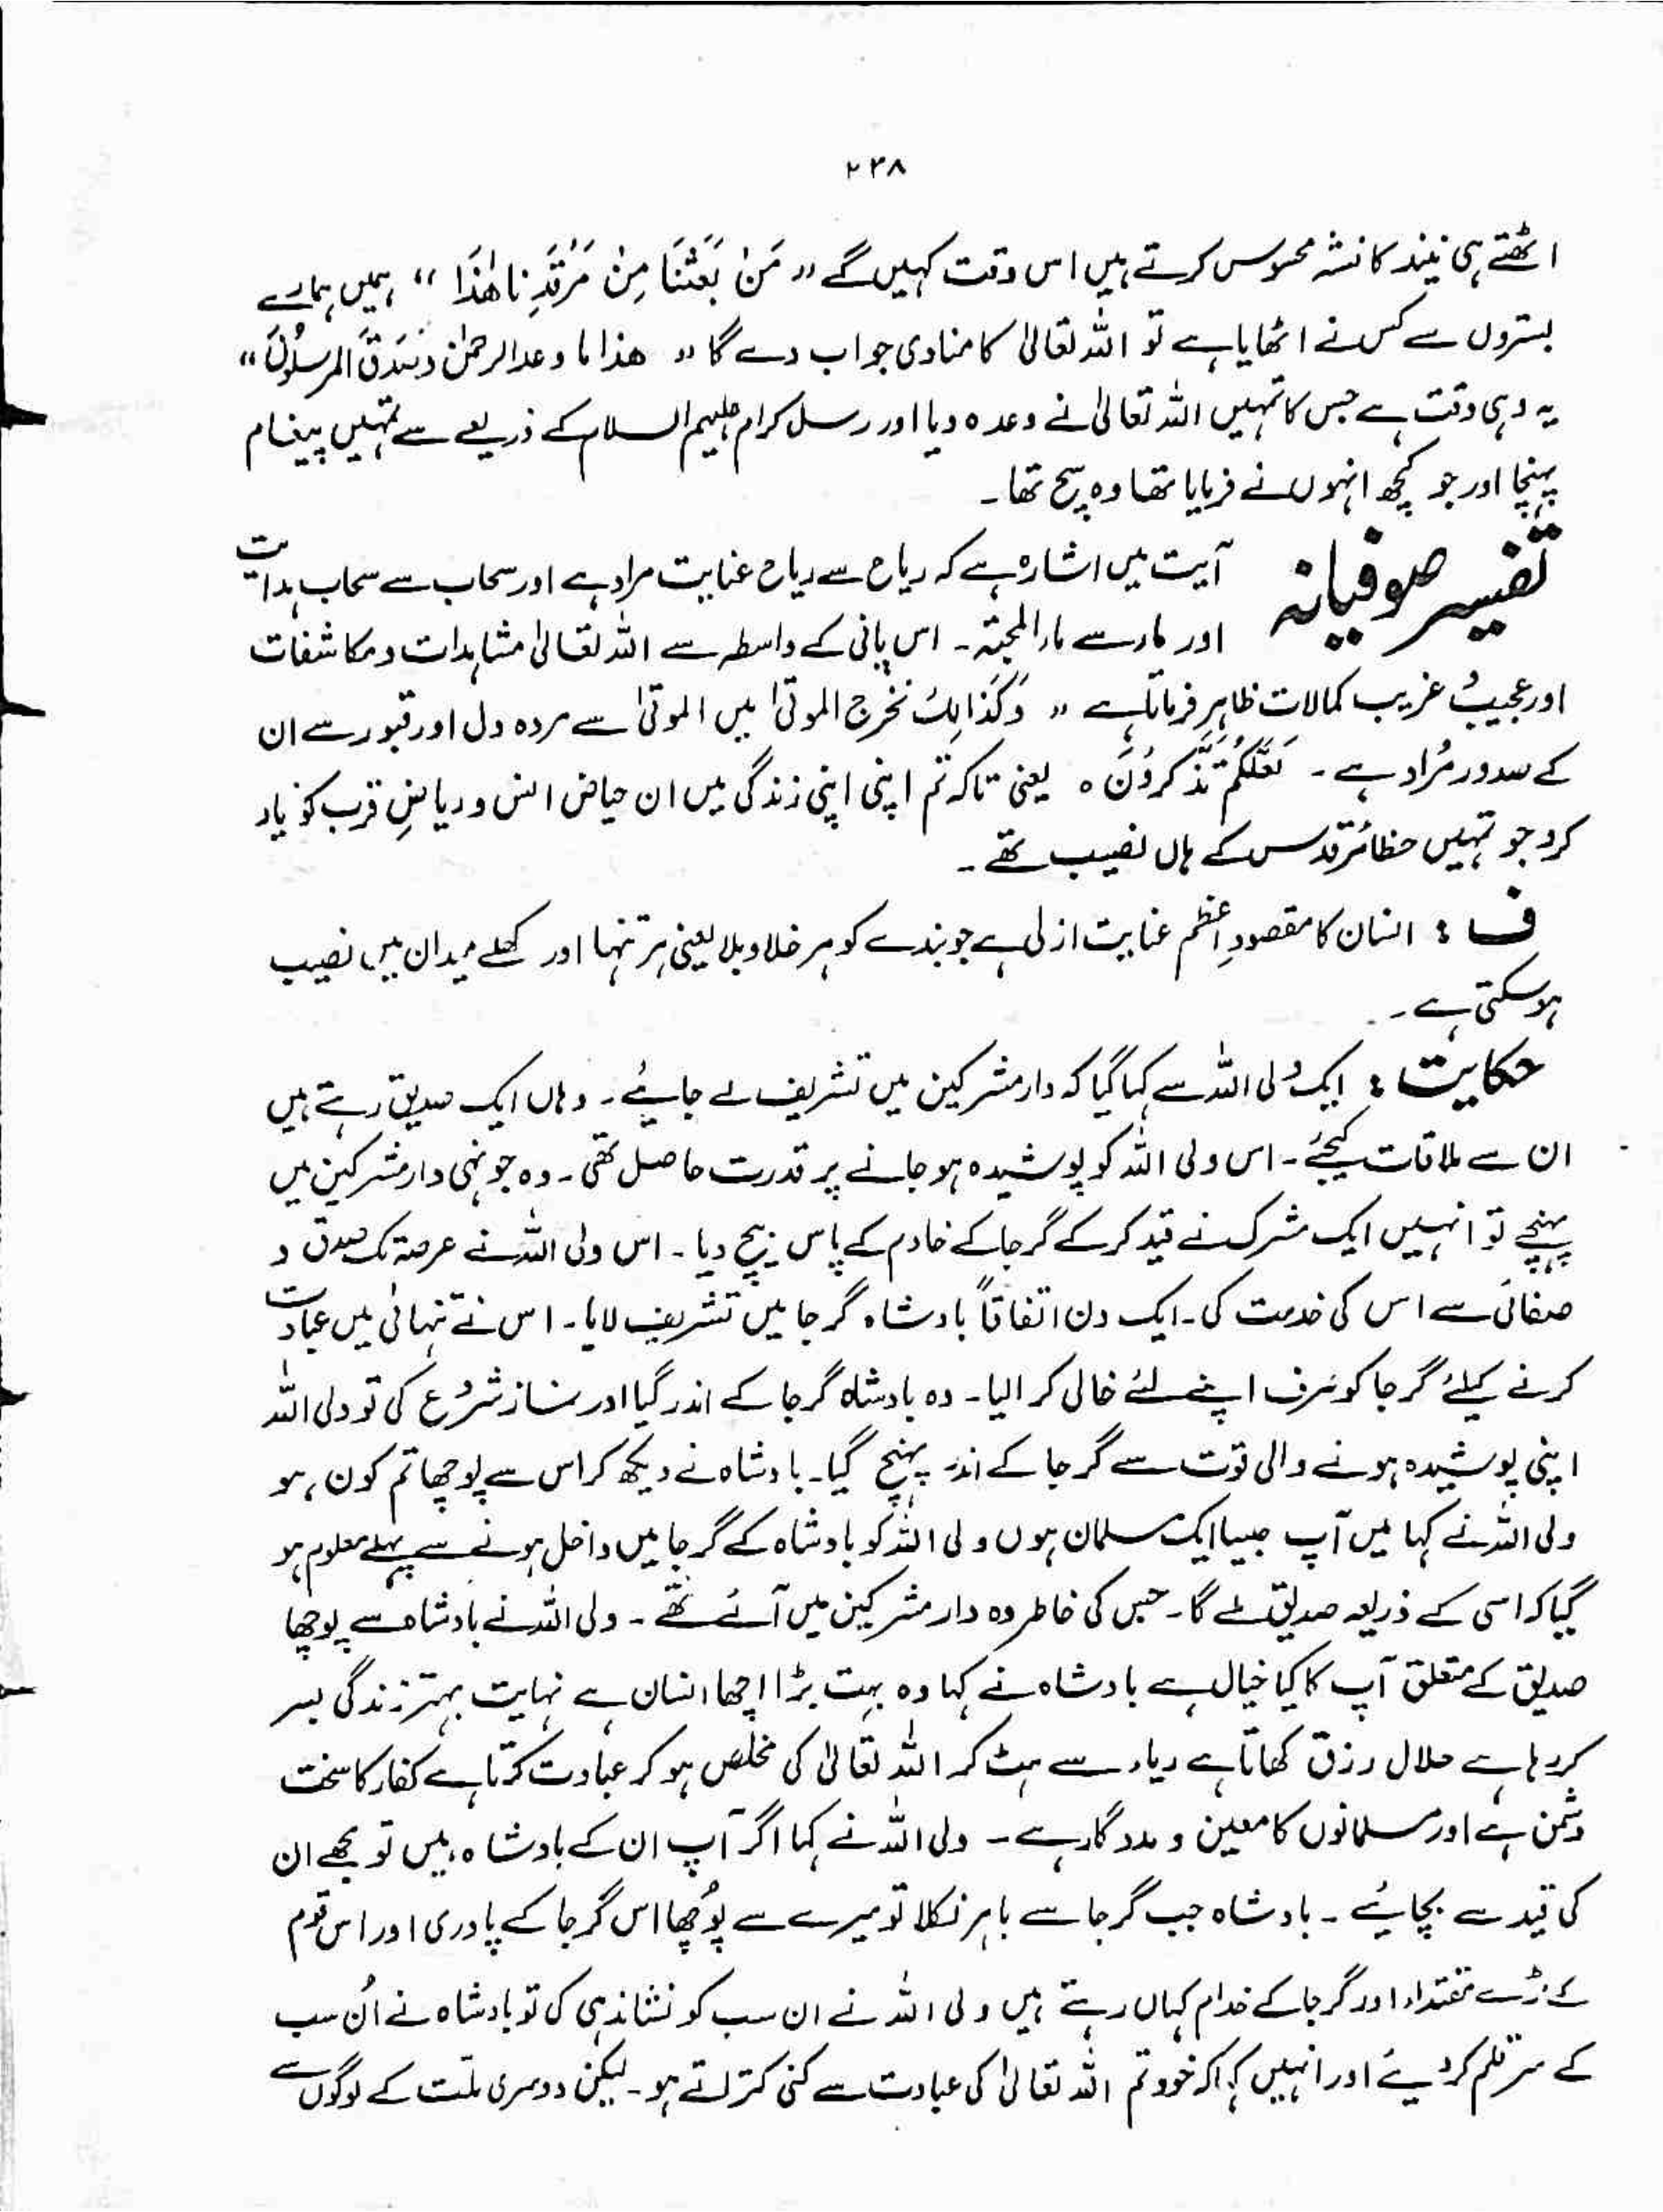 ۲۳۸
اٹھتے ہی نیند کا نشہ محسوس کرتے ہیں اس وقت کہیں گے " مَنْ بَعَثَنَا مِنْ مَرْقَدِنَا ھٰذَا " ہمیں ہمارے
بستروں سے کس نے اٹھایا ہے تو اللہ تعالیٰ کا منادی جواب دے گا " ھذا ما وعد الرحمٰن وَصَدَقَ المرسلُونَ "
یہ وہی وقت ہے جس کا تمہیں اللہ تعالیٰ نے وعدہ دیا اور رسل کرام علیہم السلام کے ذریعے سے تمہیں پیغام
پہنچا اور جو کچھ انہوں نے فرمایا تھا وہ سچ تھا۔
تفسیر صوفیانہ آیت میں اشارہ ہے کہ ریاح سے ریاح عنایت مراد ہے اور سحاب سے سحاب ہدایت
اور ماء سے ماء المحبۃ۔ اس پانی کے واسطہ سے اللہ تعالیٰ مشاہدات و مکاشفات
اور عجیب غریب کمالات ظاہر فرماتا ہے " وَكَذَالِكَ نخرج الموتیٰ میں الموتیٰ سے مردہ دل اور قبور سے ان
کے سدور مُراد ہے ۔ لَعَلَّكُمْ تَذَّكَرُوْنَ ہ یعنی تاکہ تم اپنی اپنی زندگی میں ان حیاض انس و ریاضِ قرب کو یاد
کرو جو تمہیں حظائرِ قدس کے ہاں نصیب تھے ۔
ف : انسان کا مقصودِ اعظم عنایت ازلی ہے جو بندے کو ہر خلا و بلا یعنی ہر تنہا اور کھلے میدان میں نصیب
ہو سکتی ہے ۔
حکایت : ایک ولی اللہ سے کہا گیا کہ دار مشرکین میں تشریف لے جائیے ۔ وہاں ایک صدیق رہتے ہیں
ان سے ملاقات کیجئے ۔ اس ولی اللہ کو پوشیدہ ہو جانے پر قدرت حاصل تھی ۔ وہ جونہی دار مشرکین میں
پہنچے تو انہیں ایک مشرک نے قید کر کے گرجا کے خادم کے پاس بیچ دیا ۔ اس ولی اللہ نے عرصۃ تک صدق و
صفائی سے اس کی خدمت کی ۔ ایک دن اتفاقاً بادشاہ گرجا میں تشریف لایا ۔ اس نے تنہائی میں عبادت
کرنے کیلئے گرجا کو صرف اپنے لئے خالی کرا لیا ۔ وہ بادشاہ گرجا کے اندر گیا اور نماز شروع کی تو ولی اللہ
اپنی پوشیدہ ہونے والی قوت سے گرجا کے اندر پہنچ گیا ۔ بادشاہ نے دیکھ کر اس سے پوچھا تم کون ہو
ولی اللہ نے کہا میں آپ جیسا ایک مسلمان ہوں ولی اللہ کو بادشاہ کے گرجا میں داخل ہونے سے پہلے معلوم ہو
گیا کہ اسی کے ذریعہ صدیق ملے گا ۔ جس کی خاطر وہ دار مشرکین میں آئے تھے ۔ ولی اللہ نے بادشاہ سے پوچھا
صدیق کے متعلق آپ کا کیا خیال ہے بادشاہ نے کہا وہ بہت بڑا اچھا انسان ہے نہایت بہتر زندگی بسر
کر رہا ہے حلال رزق کھاتا ہے ریاء سے ہٹ کر اللہ تعالیٰ کی مخلص ہو کر عبادت کرتا ہے کفار کا سخت
دشمن ہے اور مسلمانوں کا معین و مددگار ہے ۔ ولی اللہ نے کہا اگر آپ ان کے بادشاہ ہیں تو مجھے ان
کی قید سے بچائیے ۔ بادشاہ جب گرجا سے باہر نکلا تو میرے سے پوُچھا اس گرجا کے پادری اور اس قوم
کے بڑے مقتداء اور گرجا کے خدام کہاں رہتے ہیں ولی اللہ نے ان سب کو نشاندہی کی تو بادشاہ نے اُن سب
کے سر قلم کر دیئے اور انہیں کہا کہ خود تم اللہ تعالیٰ کی عبادت سے کنی کتراتے ہو ۔ لیکن دوسری ملّت کے لوگوں سے